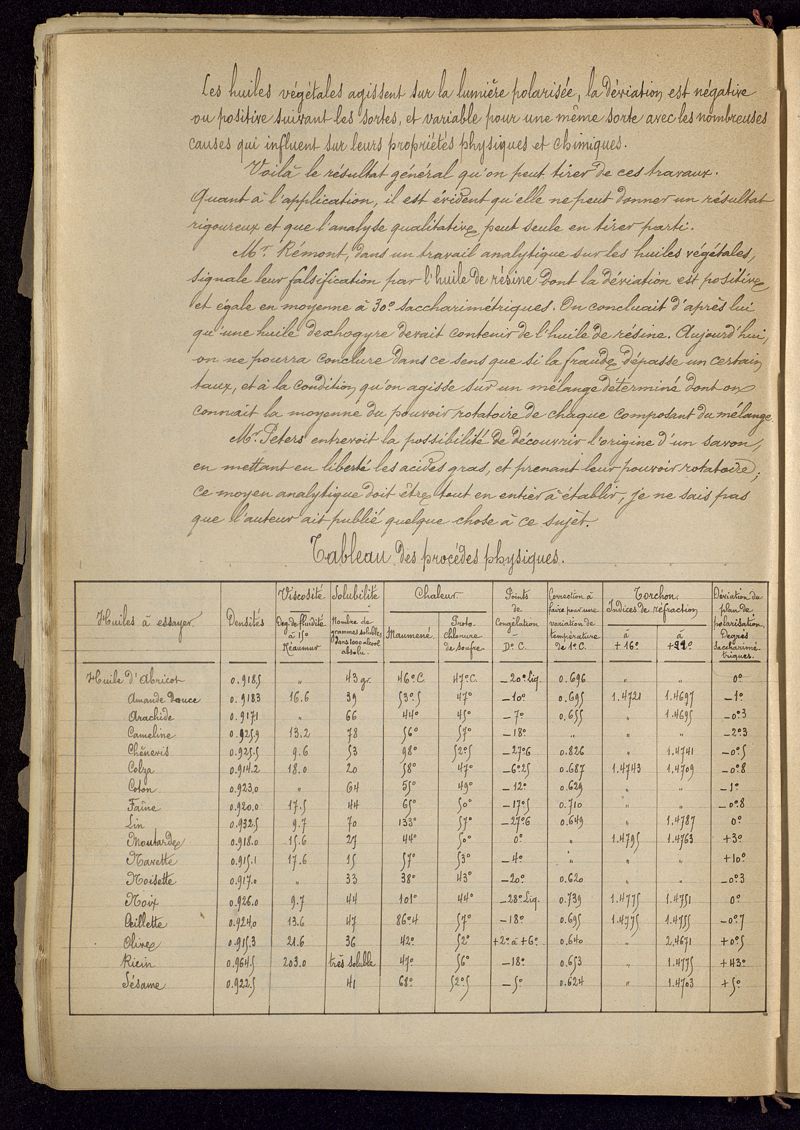 Les huiles végétales agissent sur la lumière polarisée, la déviation est négative
ou positive suivant les sortes, et variable pour une même sorte avec les nombreuses
causes qui influent sur leurs propriétés physiques et chimiques.
Voilà le résultat général qu'on peut tirer de ces travaux.
Quant à l'application, il est évident qu'elle ne peut donner un résultat
rigoureux et que l'analyse qualitative peut seule en tirer parti.
Mr. Rémont, dans un travail analytique sur les huiles végétales,
signale leur falsification par l'huile de résine dont la déviation est positive
et égale en moyenne à 30° saccharimétriques. On concluait d'après lui
qu'une huile dexhogyre devait contenir de l'huile de résine. Aujourd'hui,
on ne pourra conclure dans ce sens que si la fraude dépasse un certain
taux, et à la condition qu'on agisse sur un mélange déterminé dont on
connait la moyenne du pouvoir rotatoire de chaque composant du mélange.
Mr. Peters entrevoit la possibilité de découvrir l'origine d'un savon,
en mettant en liberté les acides gras, et prenant leur pouvoir rotatoire;
ce moyen analytique doit être tout en entier à établir; je ne sais pas
que l'auteur ait publié quelque chose à ce sujet.
Tableau des procédés physiques.
Huiles à essayer | Densités | Viscosité Deg. de fluidité à 15° Réaumur | Solubilité Nombre de grammes solubles dans 1000 alcool absolu. | Chaleur Maumené | Chaleur Proto chlorure de soufre | Points de Congélation D° C. | Correction à faire pour une variation de température de 1° C. | Torchon Indices de réfraction à +16° | à +22° | Déviation du plan de polarisation. Degrés saccharimétriques.
Huile d'Abricot | 0.9185 | " | 43 gr. | 46° C | 47° C. | -20° Liq. | 0.696 | " | " | 0°
Amande douce | 0.9183 | 16.6 | 39 | 53°5 | 47° | -10° | 0.695 | 1.4721 | 1.4697 | -1°
Arachide | 0.9171 | " | 66 | 44° | 45° | -7° | 0.655 | " | 1.4695 | -0°3
Cameline | 0.9259 | 13.2 | 78 | 56° | 57° | -18° | " | " | " | -2°3
Chénevis | 0.9255 | 9.6 | 53 | 98° | 52°5 | -27°6 | 0.826 | " | 1.4741 | -0°5
Colza | 0.9142 | 18.0 | 20 | 58° | 47° | -6°25 | 0.687 | 1.4743 | 1.4709 | -0°8
Coton | 0.9230 | " | 64 | 55° | 49° | -12° | 0.629 | " | " | -1°
Faîne | 0.9200 | 17.5 | 44 | 65° | 50° | -17°5 | 0.710 | " | " | -0°8
Lin | 0.9325 | 9.7 | 70 | 133° | 57° | -27°6 | 0.649 | " | 1.4787 | 0°
Moutarde | 0.9180 | 15.6 | 27 | 44° | 50° | 0° | " | 1.4795 | 1.4763 | +3°
Navette | 0.9151 | 17.6 | 15 | 57° | 53° | -4° | " | " | " | +10°
Noisette | 0.9170 | " | 33 | 38° | 43° | -20° | 0.620 | " | " | -0°3
Noix | 0.9260 | 9.7 | 44 | 101° | 44° | -28° Liq. | 0.739 | 1.4775 | 1.4751 | 0°
Œillette | 0.9240 | 13.6 | 47 | 86°4 | 57° | -18° | 0.695 | 1.4775 | 1.4755 | -0°7
Olive | 0.9153 | 21.6 | 36 | 42° | 52° | +2° à +6° | 0.640 | " | 2.4671 | +0°5
Ricin | 0.9645 | 203.0 | très soluble | 47° | 56° | -18° | 0.653 | " | 1.4775 | +43°
Sésame | 0.9225 | | 41 | 68° | 52°5 | -5° | 0.624 | " | 1.4703 | +5°